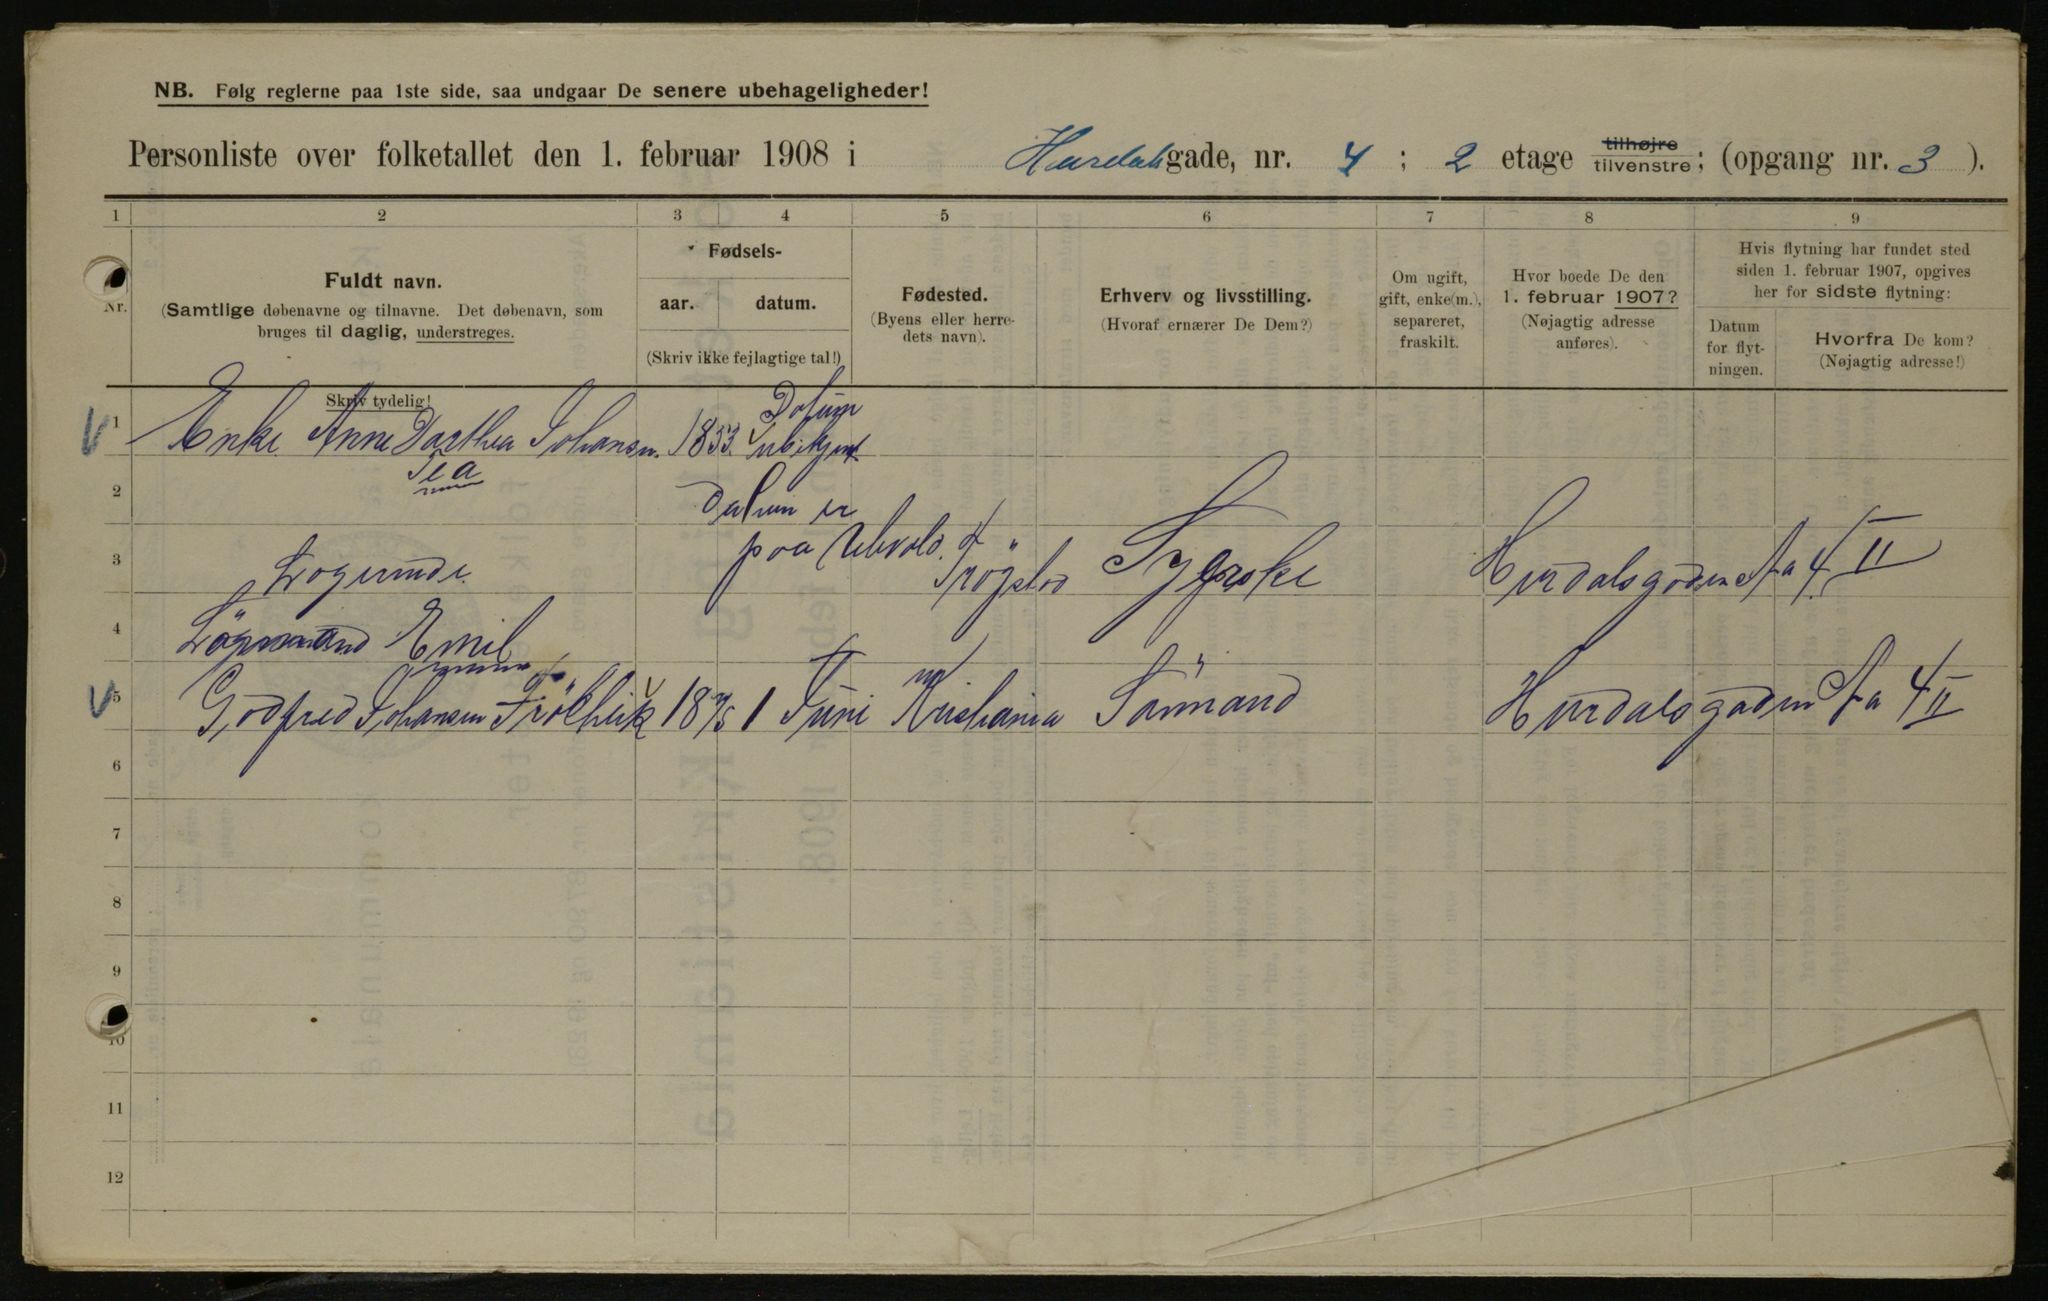 NB. Følg reglerne paa 1ste side, saa undgaar De senere ubehageligheder!
Personliste over folketallet den 1. februar 1908 i Hurdalsgade, nr. 4 ; 2 etage tilhøjre tilvenstre ; (opgang nr. 3 ).
1 2 3 4 5 6 7 8 9
Nr.
Fuldt navn.
(Samtlige døbenavne og tilnavne. Det døbenavn, som
bruges til daglig, understreges.
Skriv tydelig!
Fødsels-
aar. datum.
(Skriv ikke fejlagtige tal!)
Fødested.
(Byens eller herre-
dets navn).
Erhverv og livsstilling.
(Hvoraf ernærer De Dem?)
Om ugift,
gift, enke(m.),
separeret,
fraskilt.
Hvor boede De den
1. februar 1907?
(Nøjagtig adresse
anføres).
Hvis flytning har fundet sted
siden 1. februar 1907, opgives
her for sidste flytning:
Datum
for flyt-
ningen.
Hvorfra De kom?
(Nøjagtig adresse!)
Datum
1 Enke Anne Darthea Johansen. 1853. ubekjent
Tea
2
datum er
paa Ulevold.
3 Logerende. Trögstad Sygerske Hurdalsgaden No 4 II
4 Emil
5 Godfred Johansen Frölhick 1875 1 Juni Kristiania Sömand Hurdalsgaden No 4 II
6
7
8
9
10
11
12